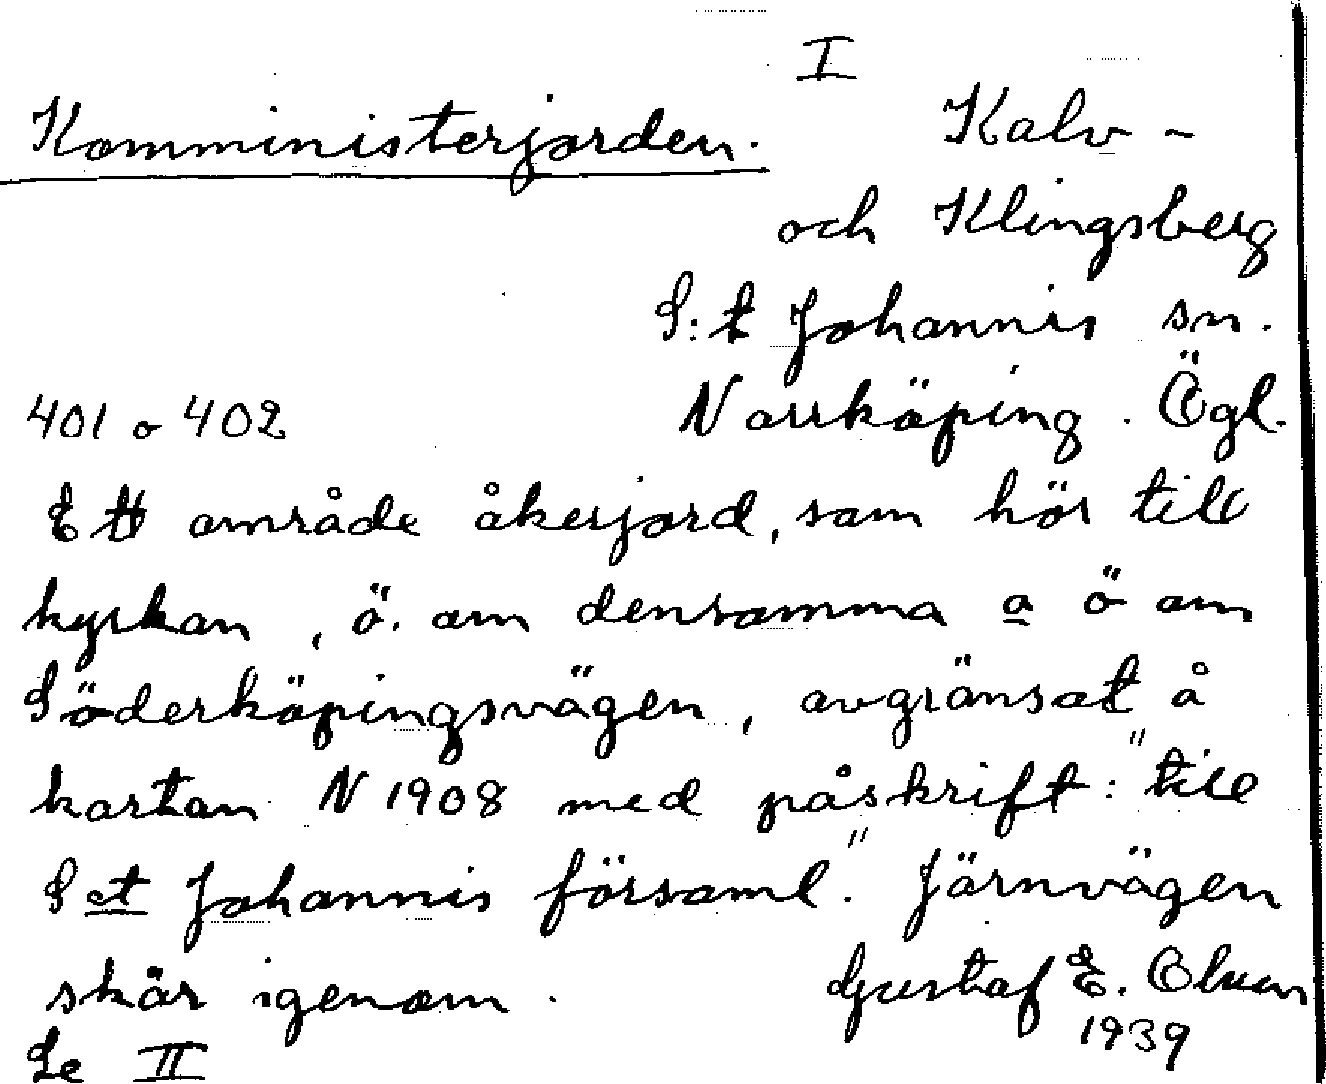 I
Komministerjorden. Kalv-
och Klingsberg
S:t Johannis sn.
401 o 402 Norrköping. Ögl.
Ett område åkerjord, som hör till
kyrkan, ö. om densamma o ö om
Söderköpingsvägen, avgränsat å
kartan N 1908 med påskrift: "till
S et Johannis församl." Järnvägen
skär igenom. Gustaf E. Olsson
1939
Se II